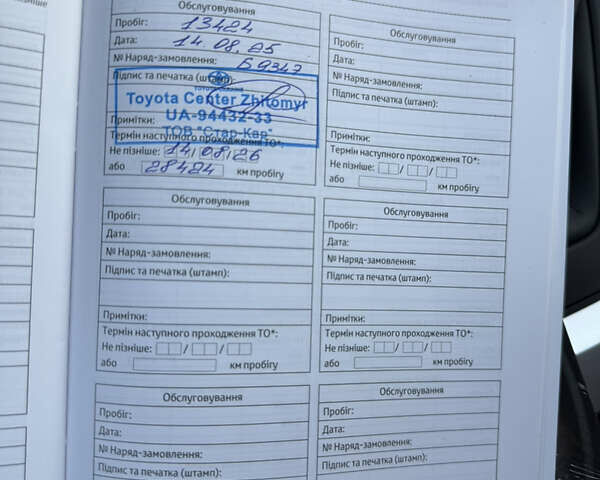 пізніше
Обслуговування
Пробіг: 13424
Дата: 14.08.25
№ Наряд-замовлення: Б9347
Підпис та печатка (штамп):
Toyota Center Zhitomyr
UA-94432-33
ТОВ "Стар-Кар"
Примітки:
Термін наступного проходження ТО*:
Не пізніше: 14/08/26
або 28424 км пробігу
Обслуговування
Пробіг:
Дата:
№ Наряд-замовлення:
Підпис та печатка (штамп):
Примітки:
Термін наступного проходження ТО*:
Не пізніше: / /
або км пробігу
Обслуговування
Пробіг:
Дата:
№ Наряд-замовлення:
Підпис та печатка (штамп):
Примітки:
Термін наступного проходження ТО*:
Не пізніше: / /
або км пробігу
Обслуговування
Пробіг:
Дата:
№ Наряд-замовлення:
Підпис та печатка (штамп):
Примітки:
Термін наступного проходження ТО*:
Не пізніше: / /
або км пробігу
Обслуговування
Пробіг:
Дата:
№ Наряд-замовлення:
Підпис та печатка (штамп):
Обслуговування
Пробіг:
Дата:
№ Наряд-замовлення:
Підпис та печатка (штамп):